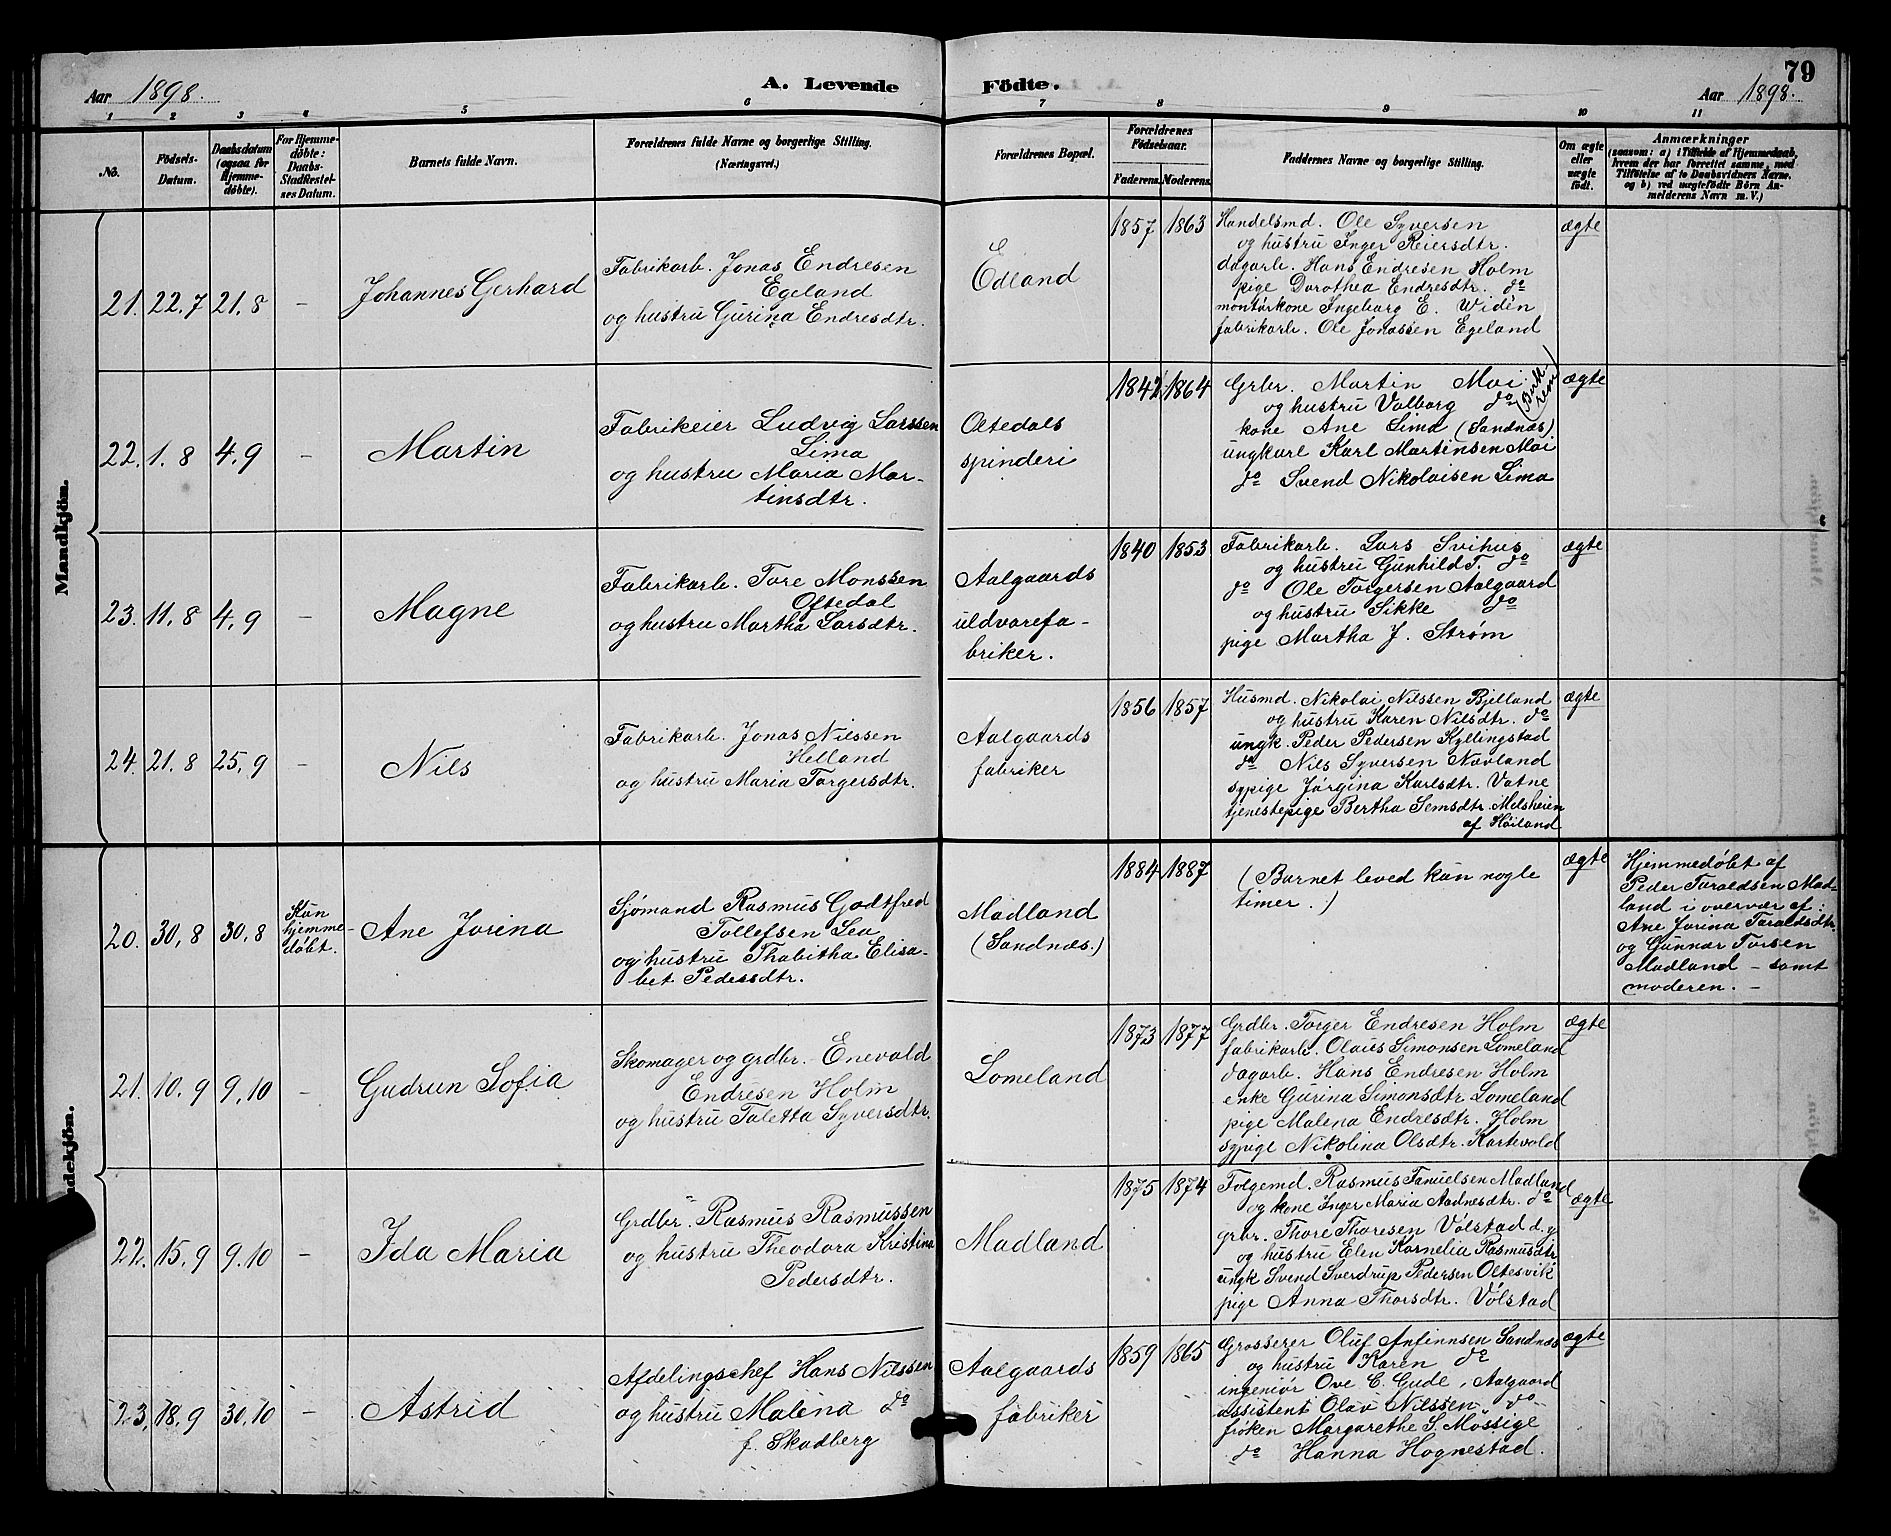 79
Aar 1898.
A. Levende Födte.
Aar 1898.
1 2 3 4 5 6 7 8 9 10 11
No.
Födsels-
Datum.
Daabsdatum
(ogsaa for
Hjemme-
döbte).
For Hjemme-
döbte:
Daabs-
Stadfæstel-
ses Datum.
Barnets fulde Navn.
Forældrenes fulde Navne og borgerlige Stilling.
(Næringsvei.)
Forældrenes Bopæl.
Forældrenes
Födselsaar.
Faderens. Moderens.
Faddernes Navne og borgerlige Stilling.
Om ægte
eller
uægte
født.
Anmærkninger
(saasom: a) i Tilfælde af Hjemmedaab,
hvem der har forrettet samme, med
Tilföielse af to Daabsvidners Navne.
og b) ved uægtefödte Börn An-
melderens Navn m. V.)
Mandkjön.
21. 22.7 21.8 - Johannes Gerhard
Fabrikarb. Jonas Endresen
Egeland
og hustru Gurina Endresdtr.
Edland
1857 1863
Handelsmd. Ole Syversen
og hustru Inger Reiersdtr.
dagarb. Hans Endresen Holm
pige Dorothea Endresdtr. do
montørkone Ingeborg E. Widèn
fabrikarb. Ole Jonassen Egeland
ægte
22. 1.8 4.9 - Martin
Fabrikeier Ludvig Larssen
Lima
og hustru Maria Mar-
tinsdtr.
Oltedals
spinderi
1842 1864
Grbr. Martin Moi
og hustru Valborg do
kone Ane Lima (Sandnæs)
ungkarl Karl Martinsen Moi
do Svend Nikolaisen Lima
ægte
23. 11.8 4.9 - Magne
Fabrikarb. Tore Monssen
Oftedal
og hustru Martha Larsdtr.
Aalgaards
uldvarefa-
briker.
1840 1853
Fabrikarb. Lars Svihus
og hustru Gunhild T. do
do Ole Torgersen Aalgaard
og hustru Sikke do
pige Martha J. Strøm
ægte
24. 21.8 25.9 - Nils
Fabrikarb. Jonas Nilssen
Helland
og hustru Maria Torgersdtr.
Aalgaards
fabriker
1856 1857
Husmd. Nikolai Nilssen Bjelland
og hustru Karen Nilsdtr. do
ungk. Peder Pedersen Kyllingstad
do Nils Syversen Navland
sypige Jørgina Karlsdtr. Vatne
tjenestepige Bertha Semsdtr. Melsheien
af Høiland
ægte
20. 30.8 30.8
Kun
hjemme-
døbt.
Ane Jorina
Sjømand Rasmus Godtfred
Tollefsen Lea
og hustru Thabitha Elisa-
bet Pedersdtr.
Madland
(Sandnæs.)
1884 1887
(Barnet leved kun nogle
timer.)
ægte
Hjemmedøbt af
Peder Taraldsen Mad-
land i overvær af:
Ane Jorina Taraldsdtr.
og Gunnar Torsen
Madland - samt
moderen. -
21. 10.9 9.10 - Gudrun Sofia
Skomager og grdbr. Enevald
Endresen Holm
og hustru Taletta Syversdtr.
Lomeland
1873 1877
Grdbr. Torger Endresen Holm
fabrikarb. Olaus Simonsen Lomeland
dagarb. Hans Endresen Holm
enke Gurina Simonsdtr. Lomeland
pige Malena Endresdtr. Holm
sypige Nikolina Olsdtr. Kartevold
ægte
22. 15.9 9.10 - Ida Maria
Grdbr. Rasmus Rasmussen
og hustru Theodora Kristina
Pedersdtr.
Madland
1875 1874
Folgemd. Rasmus Tanielsen Madland
og kone Inger Maria Aadnesdtr. do
grbr. Thore Thoresen Volstad d.y.
og hustru Elen Kornelia Rasmusdtr
ungk Svend Sverdrup Pedersen Oltesvik
pige Anna Thorsdtr. Volstad
ægte
23. 18.9 30.10 - Astrid
Afdelingschef Hans Nilssen
og hustru Malena do
f. Skadberg
Aalgaards
fabriker
1859 1865
Grosserer Oluf Anfinnsen Sandnæs
og hustru Karen do
ingeniør Ove C. Gude, Aalgaard
assistent Olav Nilssen do
frøken Margarethe S. Mossige
do Hanna Hognestad.
ægte